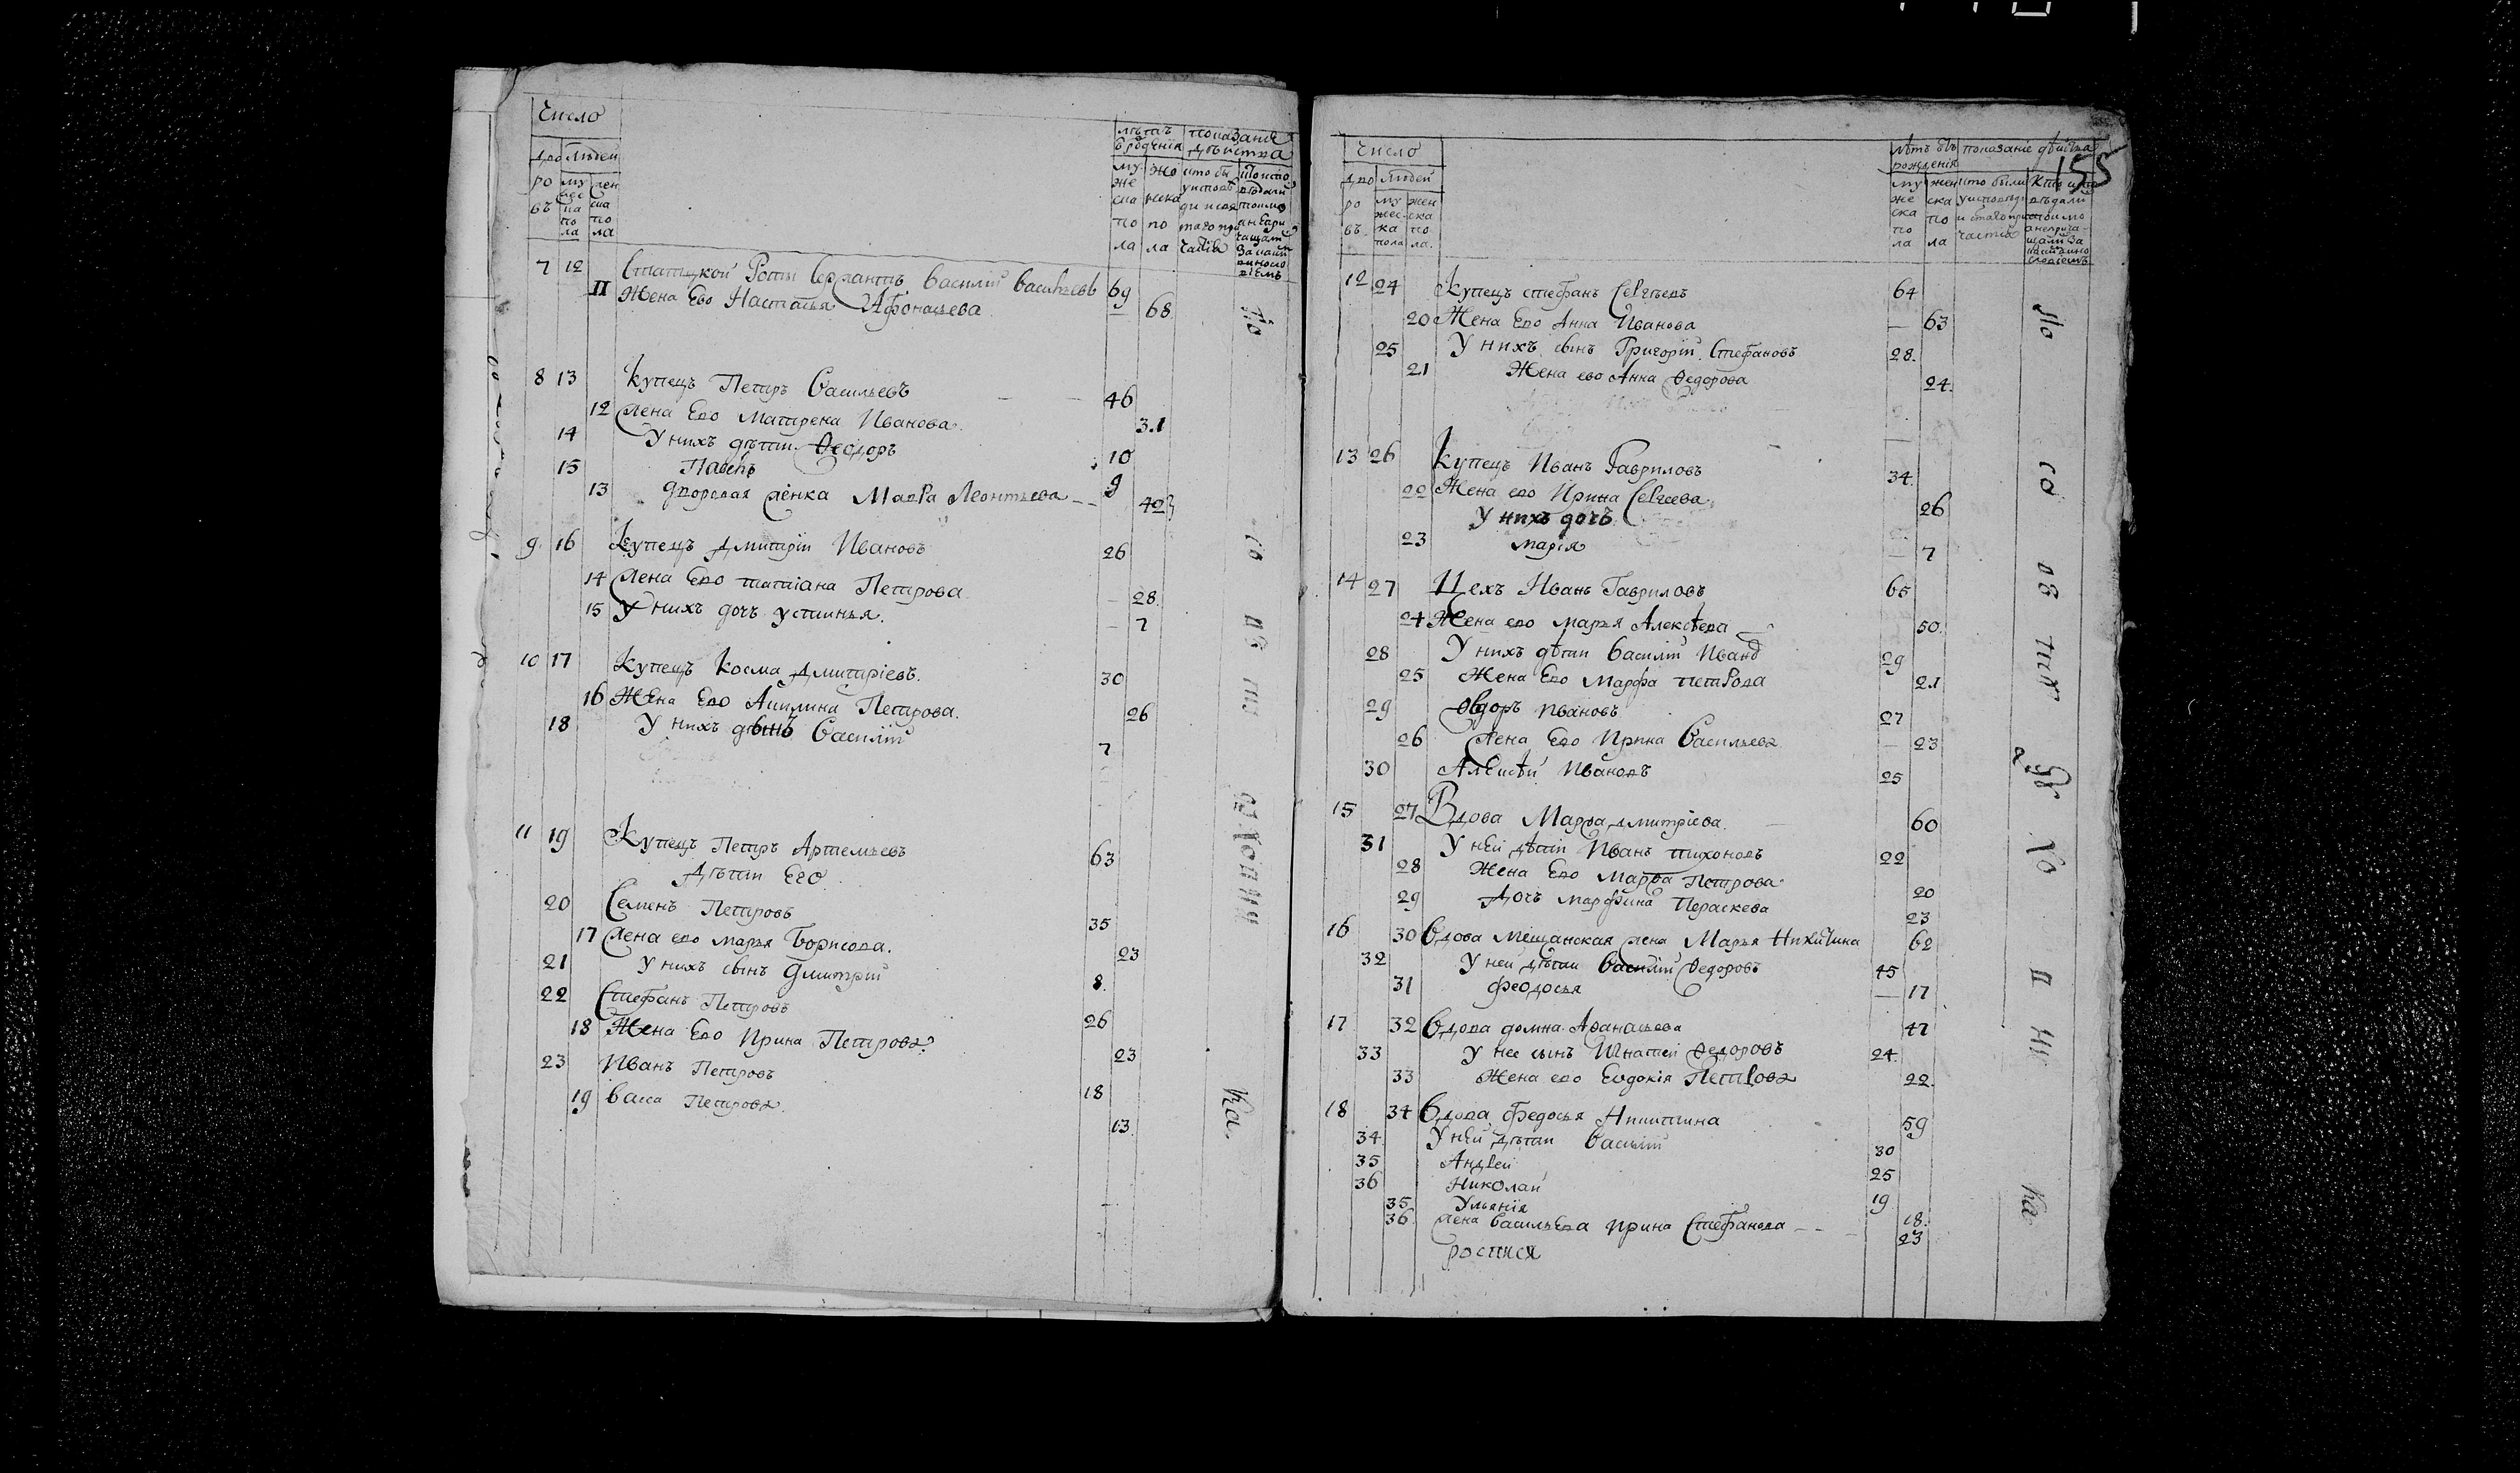 Число
лѣтъ показание
в рожденія дѣиства
дво людеи
ро му жен
въ жес ска
ка по
по ла
ла
му же что бы
же нска у исповѣ
ска по ди и свя
по ла таго при
ла частія
7 12 Статцкой Роты Сержантъ василии васильевъ 69
11 Жена Ево Настасья Афонасьева 68
8 13 купецъ Петръ Васильевъ 46
12 жена Ево Матрена Иванова 31
14 У нихъ дѣти Ѳеодоръ 10
15 Павелъ 9
13 дворовая женка Мавра Леонтьева 42
9 16 Купецъ Дмитрiи Ивановъ 26
14 жена Ево татiана Петрова 28
15 У нихъ дочь устинья 7
10 17 Купецъ Косма Дмитрiевъ 30
16 Жена Ево Акилина Петрова 26
18 У нихъ сынъ Василiи 7
11 19 Купецъ Петръ Артемьевъ 63
Дѣти Его
20 Семенъ Петровъ 35
17 жена ево марья Борисова 23
21 У нихъ сынъ дмитрiи 8
22 Стефанъ Петровъ 26
18 Жена Ево Ирина Петрова 23
23 Иванъ Петровъ 18
19 васса Петрова 13
По
со
ка
155
Число
лѣтъ отъ показание дѣиства
рожденiя
дво людей
ро му жен
въ жес ска
ка по
пола ла
му жен кто были
же ска у исповѣди
ска по и святаго при
по ла частiя
ла
12 24 Купецъ стефанъ Сергѣевъ 64
20 Жена Ево Анна Иванова 63
25 У нихъ сынъ Григорiи Стефановъ 28
21 Жена ево Анна Ѳедорова 24
13 26 купецъ Иванъ Гавриловъ 34
22 Жена ево Ирина Сергеева 26
У нихъ дочь
23 марiя 7
14 27 Цехъ Иванъ Гавриловъ 65
24 Жена ево марья Алексѣева 50
28 У нихъ дѣти василiи Иванов 29
25 Жена Ево Марфа петрова 21
29 Ѳедоръ ивановъ 27
26 жена Ево Ирина Васильева 23
30 Алексѣй Ивановъ 25
15 27 Вдова Марѳа дмитрiева 60
31 У ней дѣти Иванъ тихоновъ 22
28 Жена Ево Марѳа Петрова 20
29 Дочь марфина Параскева 23
16 30 Вдова мещанская жена Марья Никитина 62
32 У ней дѣти Василiи Ѳедоровъ 45
31 феодосья 17
17 32 Вдова домна Аѳанасьева 47
33 У нее сынъ Игнатеи Ѳедоровъ 24
33 Жена ево Евдокiя Петрова 22
18 34 Вдова Федосья Никитина 59
34 У ней дѣти василiи 30
35 Андреи 25
36 Николаи 19
35 Ульянiя 18
36 жена васильева ирина Стефанова 23
росписи
По
со
ка